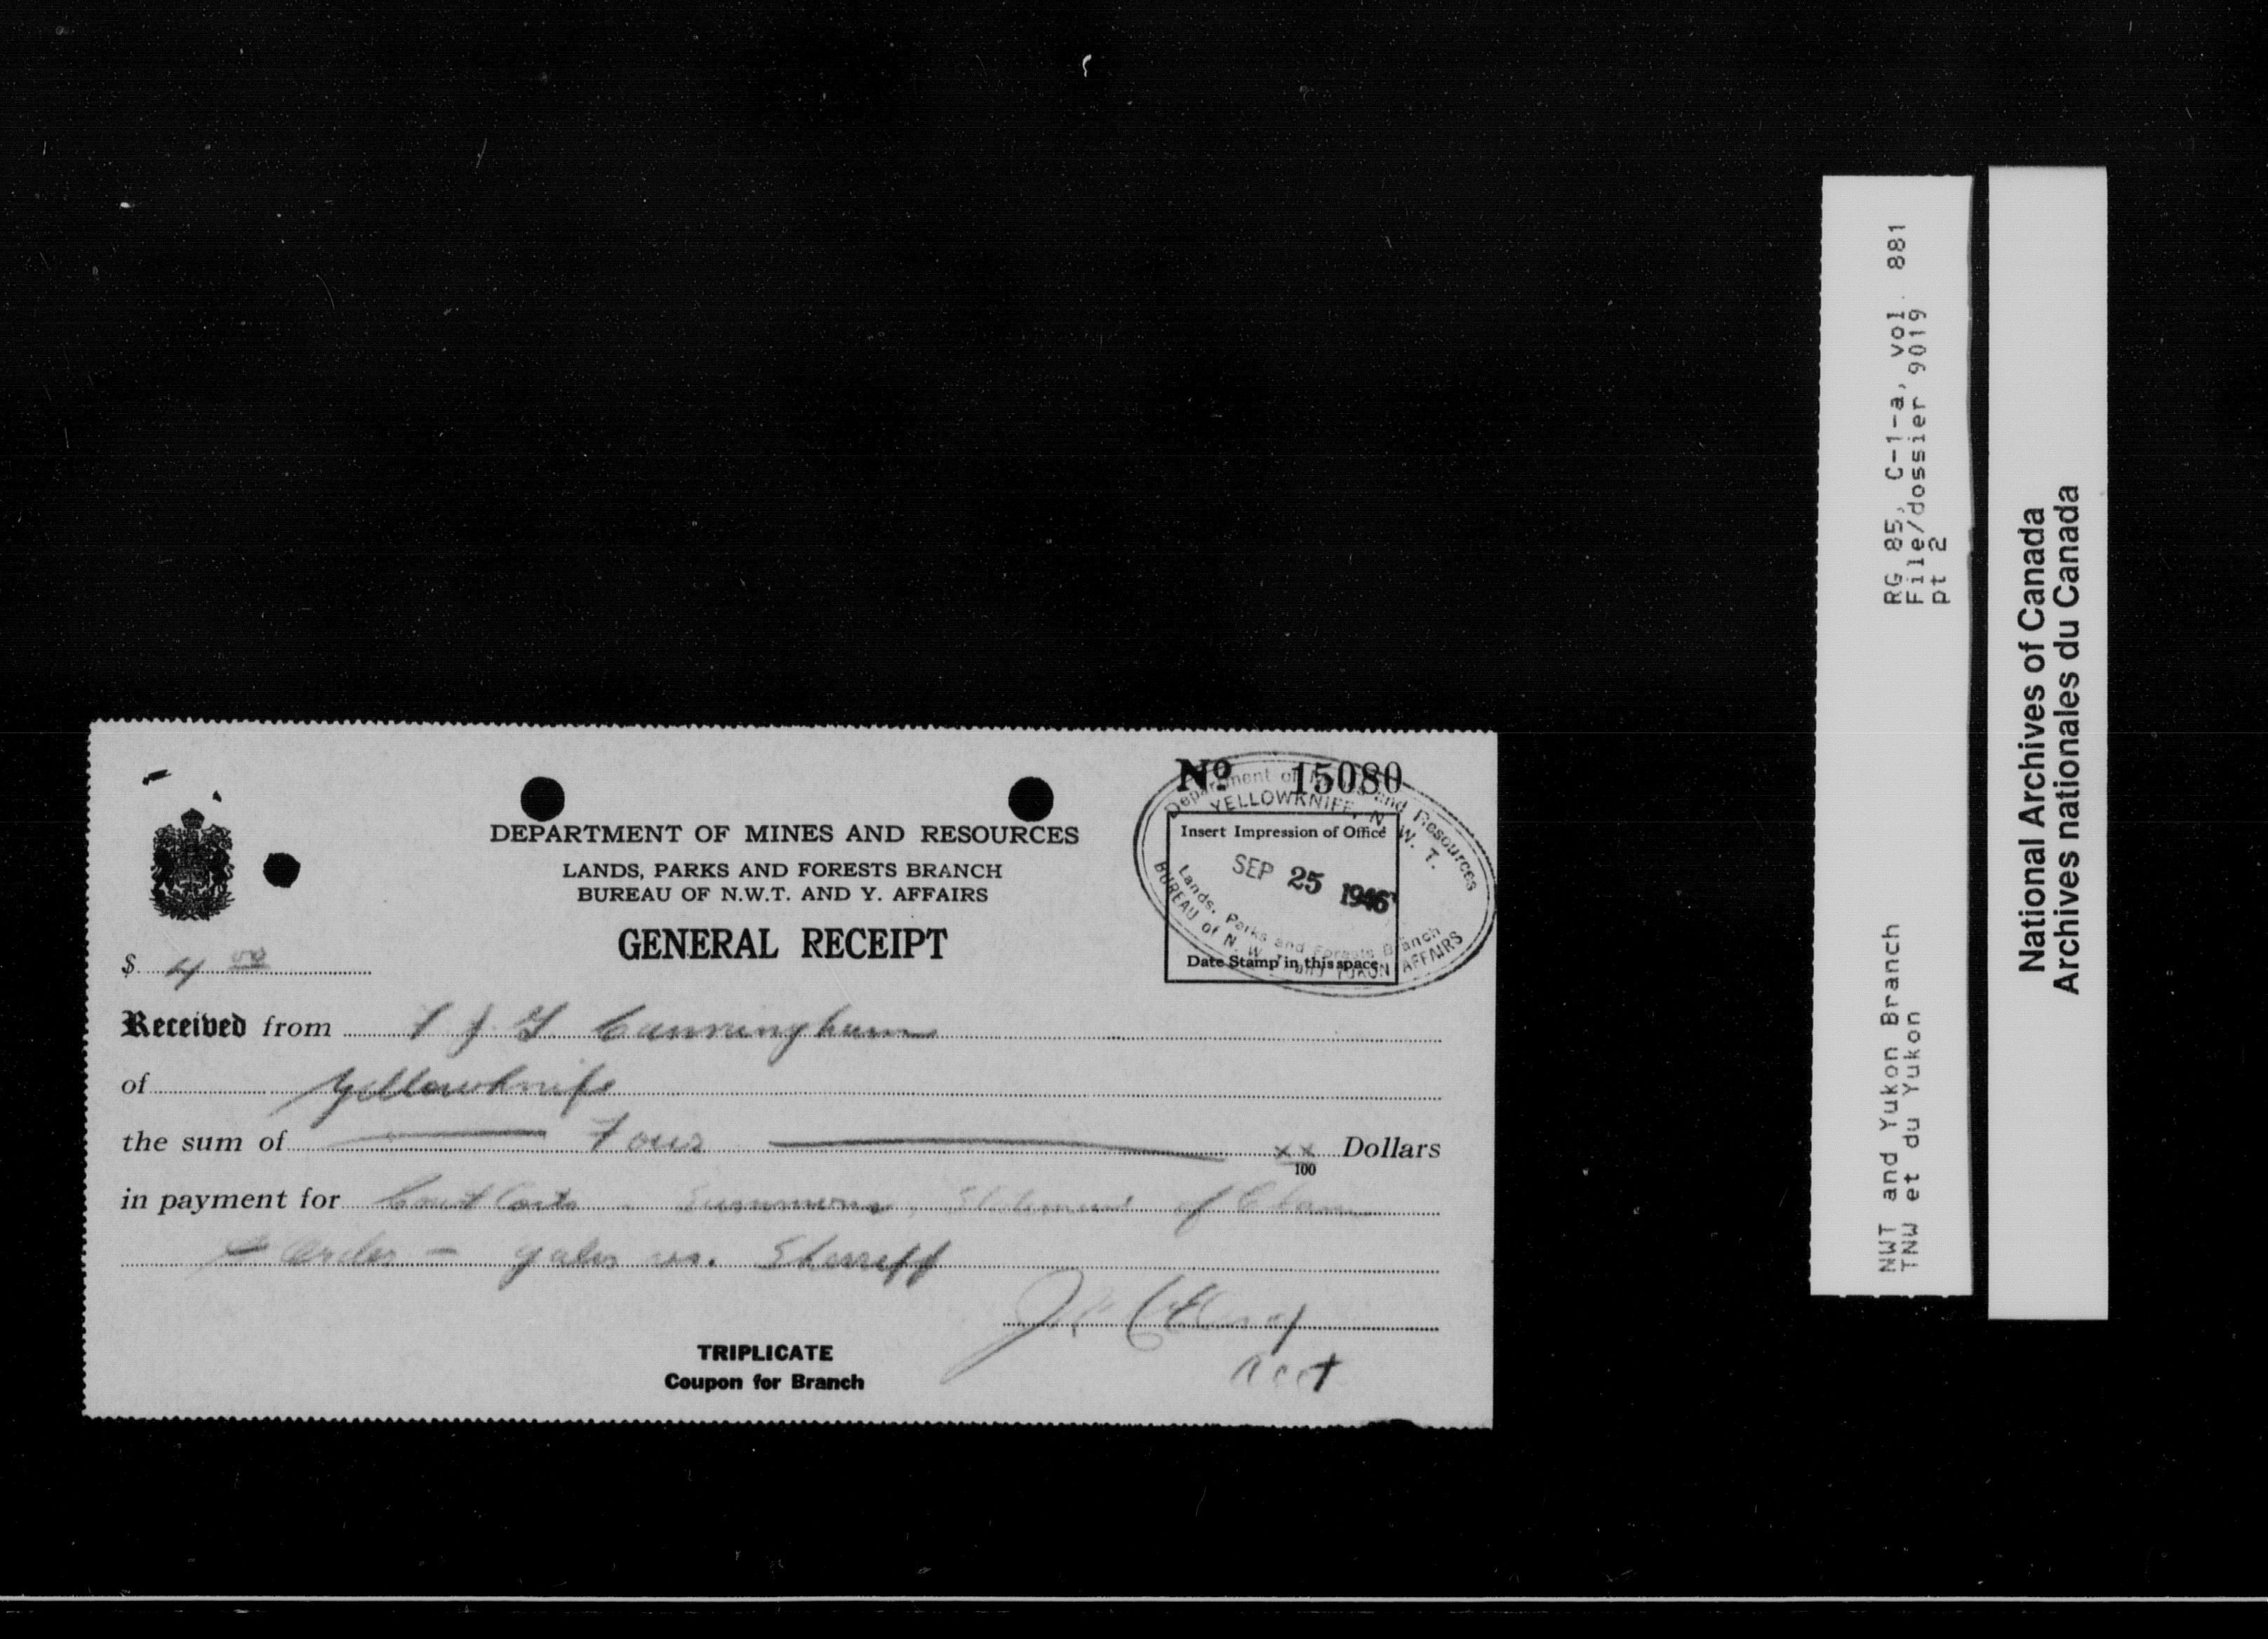 Nº 15080
DEPARTMENT OF MINES AND RESOURCES
LANDS, PARKS AND FORESTS BRANCH
BUREAU OF N.W.T. AND Y. AFFAIRS
GENERAL RECEIPT
Department of Mines and Resources
YELLOWKNIFE, N. W. T.
Insert Impression of Office
SEP 25 1946
Lands, Parks and Forests Branch
BUREAU of N. W. T. and YUKON AFFAIRS
Date Stamp in this space
$ 4 00
Received from J G Cunningham
of Yellowknife
the sum of Four xx/100 Dollars
in payment for Court Costs - Summons, Statement of Claim
& Order - vs. Sherriff
Acct
TRIPLICATE
Coupon for Branch
RG 85, C-1-a, vol. 881
File/dossier 9019
pt 2
NWT and Yukon Branch
TNW et du Yukon
National Archives of Canada
Archives nationales du Canada